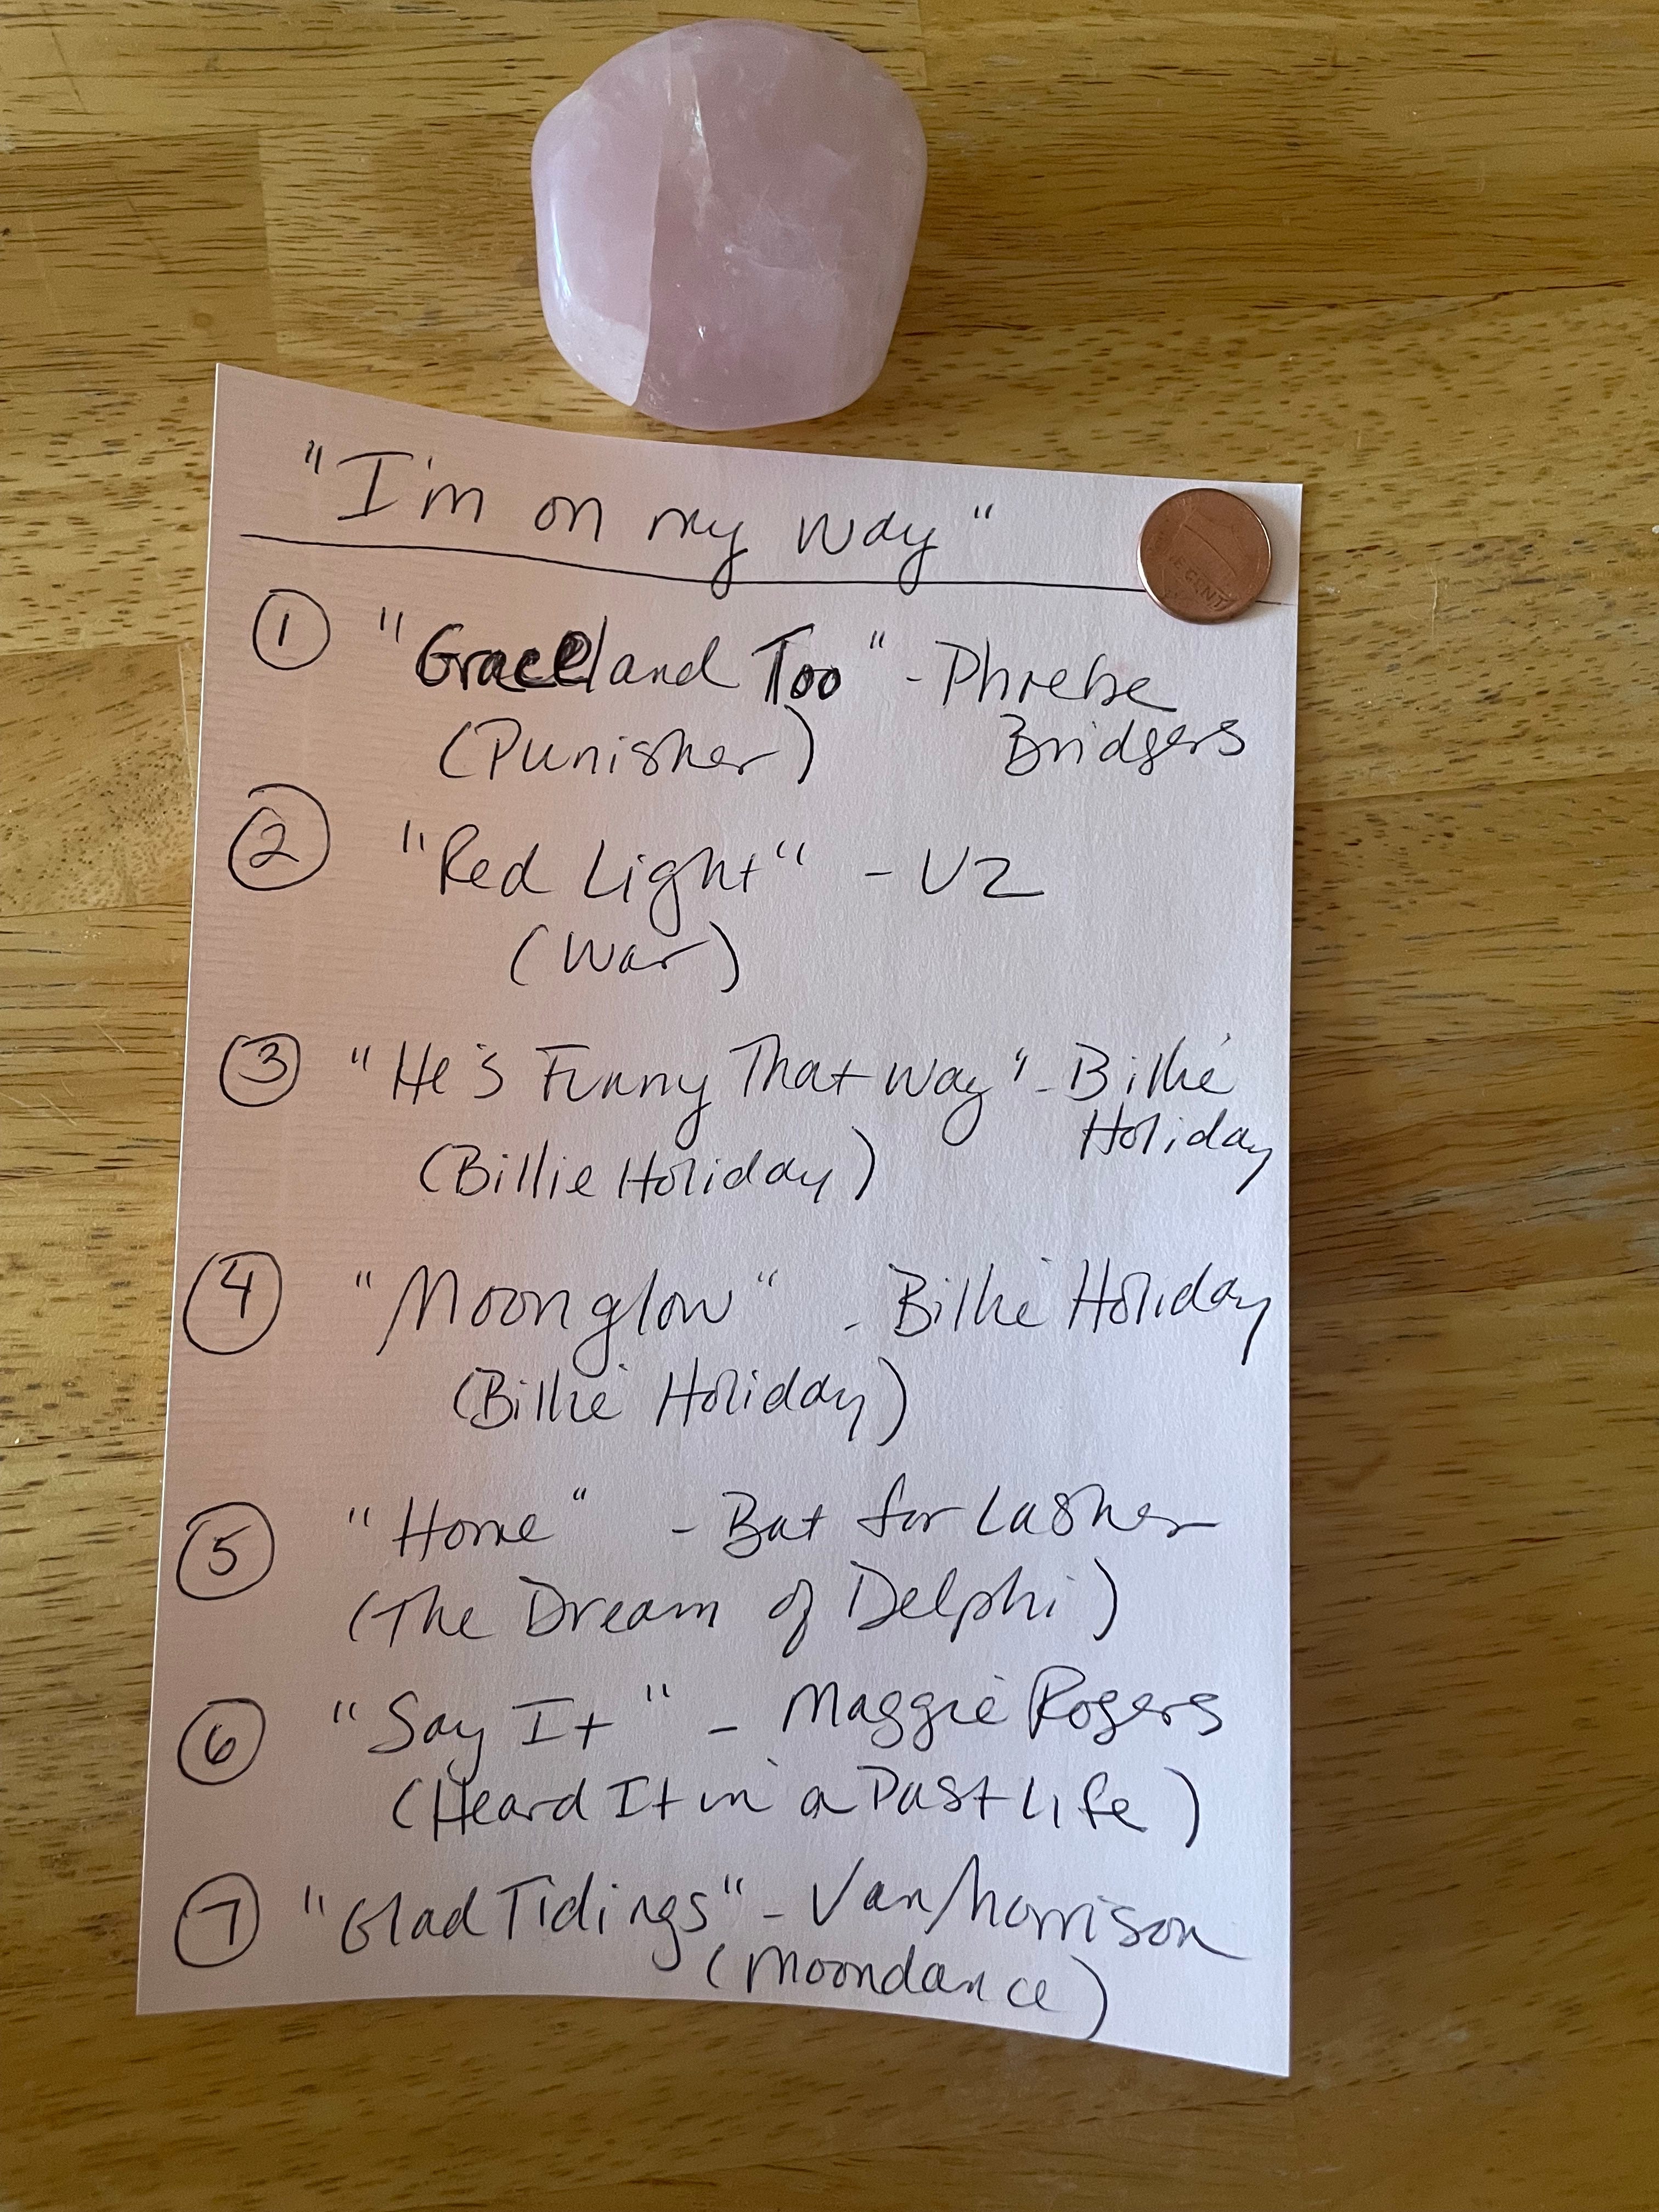 "I'm on my way"
① "Graceland Too" - Phoebe
(Punisher) Bridgers
② "Red Light" - U2
(War)
③ "He's Funny That Way" - Billie
Holiday
(Billie Holiday)
④ "Moonglow" - Billie Holiday
(Billie Holiday)
⑤ "Home" - Bat for Lashes
(The Dream of Delphi)
⑥ "Say It" - Maggie Rogers
(Heard It in a Past Life)
⑦ "Glad Tidings" - Van Morrison
(Moondance)